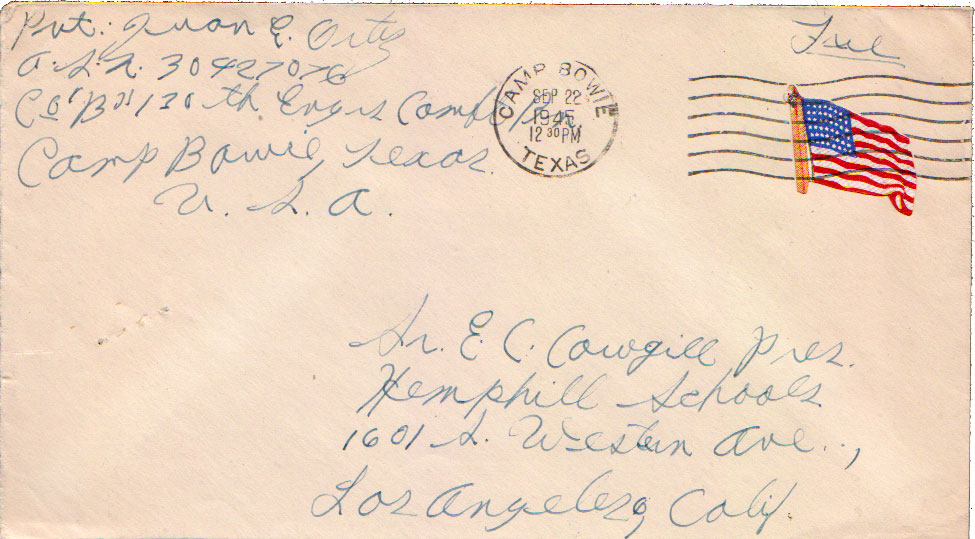 Pvt. Juan E. Ortiz
A.S.N. 30427076
Co "B" 130th Engrs Combat
Camp Bowie, Texas.
U. S. A.
Free
CAMP BOWIE
SEP 22
1945
12 30 PM
TEXAS
Sr. E. C. Cowgill Pres.
Hemphill Schools
1601 S. Western Ave.,
Los Angeles, Calif.